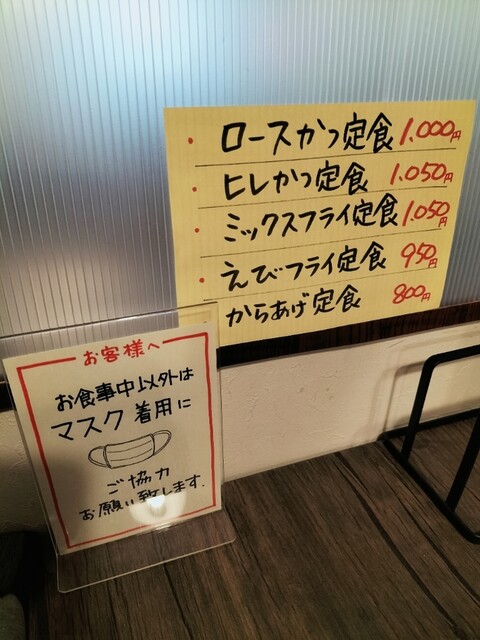 ・ロースかつ定食 1,000円
・ヒレかつ定食 1.050円
・ミックスフライ定食 1.050円
・えびフライ定食 950円
からあげ定食 800円
お客様へ
お食事中以外は
マスク着用に
ご協力
お願い致します.